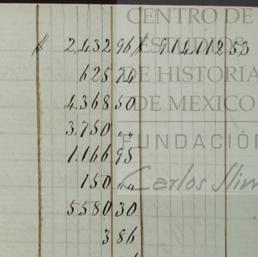 $ 2,432 96 $ 914,112 53
625 70
4.368 50
3.750 ,,
1.166 95
150 ,,
5.580 30
3 86
CENTRO DE
ESTUDIOS
DE HISTORIA
DE MEXICO
FUNDACIÓN
Carlos Slim